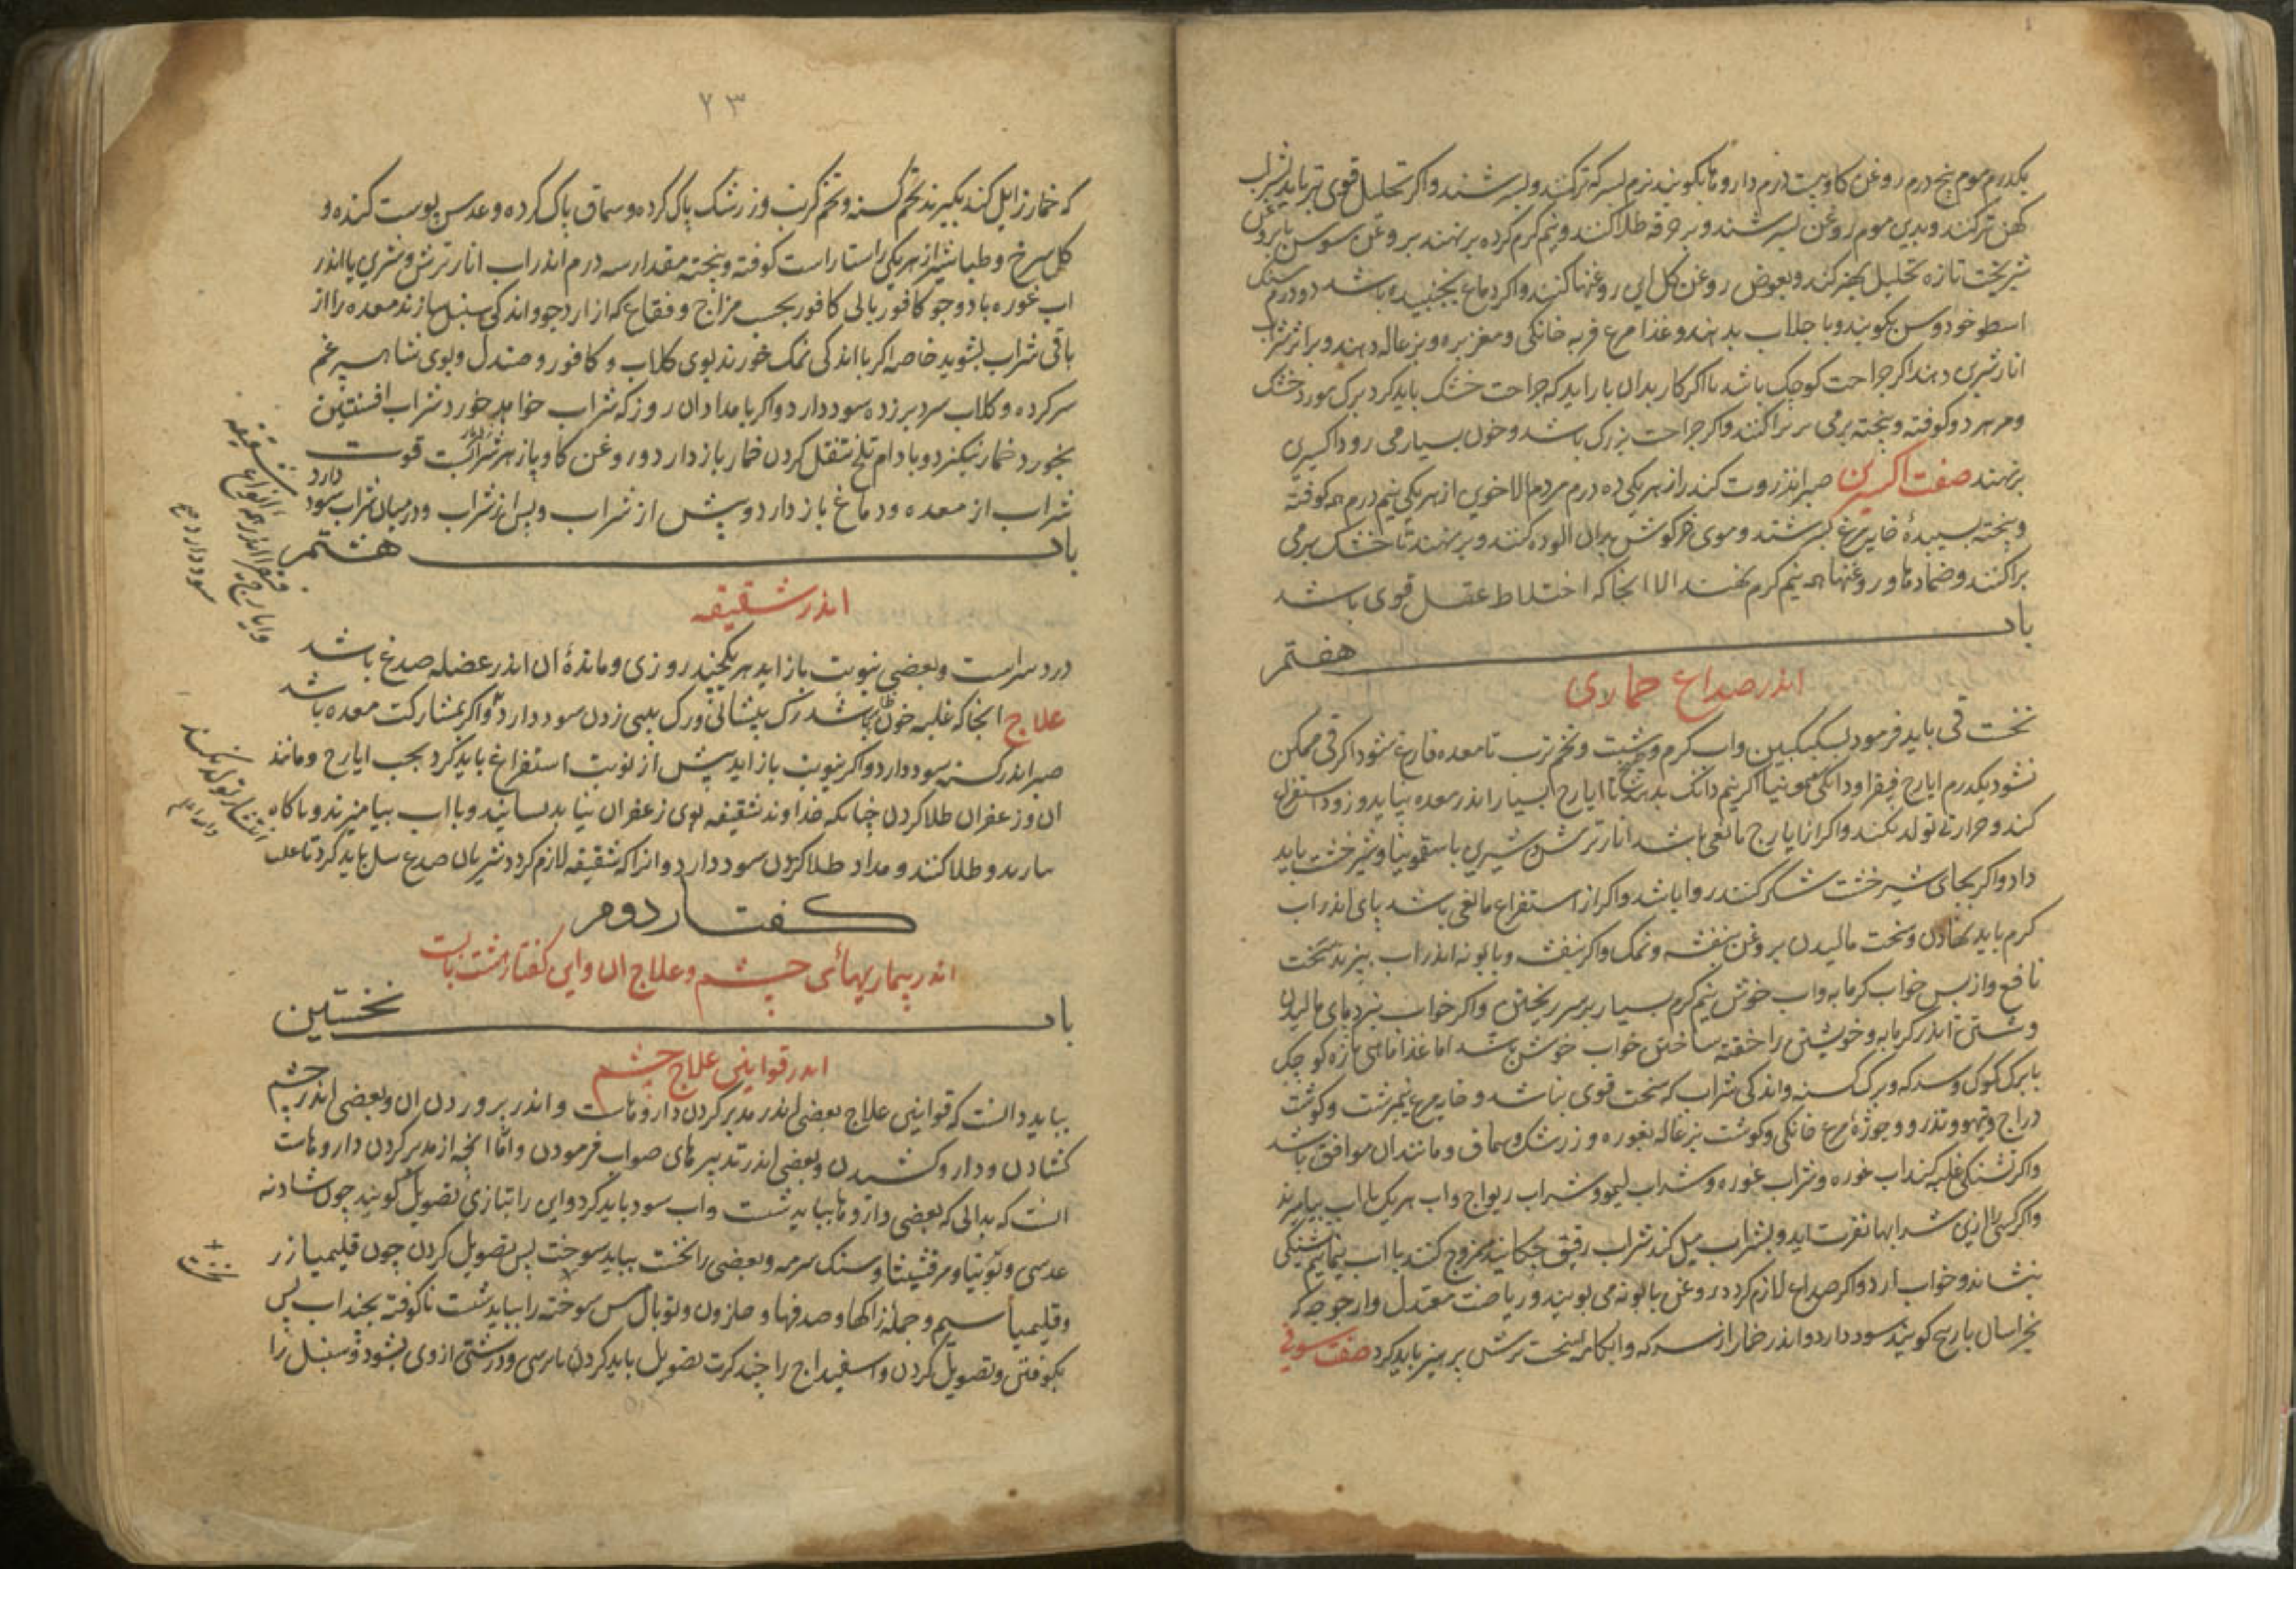 یکدرم موم پنج درم روغن کاو بیست درم داروها بکوبند نرم بسرکه ترکنند و بسرشند و اکر تحلیل قوی تر باید بشراب
کهن ترکنند و بدین موم روغن بسرشند و بر خرقه طلا کنند و نیم کرم کرده بر نهند بروغن سوسن یا بروغن
تازه تحلیل بهتر کند و بعوض روغن کل این روغنها کنند و اکر دماغ بجنبیده باشد دو درم سنک
اسطوخودوس بکوبند و با جلاب بدهند و غذا مرغ فربه خانکی و مغز بره و بزغاله دهند و بر اثر شراب
انار شیرین دهند اکر جراحت کوچک باشد یا اکر کار بدان باز اید که جراحت خشک باید کرد برک مورد خشک
و مر هر دو کوفته و پخته بر می پراکنند و اکر جراحت بزرک باشد و خون بسیار می رود اکسیرین
بر نهند صفت اکسیرین صبر انذروت کندر از هر یکی ده درم مردم الاخوین از هر یکی نیم درم همه کوفته
و پخته بسپیدهٔ خایه مرغ بسرشند و موی خرکوش بدان الوده کنند و بر نهند تا خشک بر می
براکنند و ضمادها و روغنها همه نیم کرم نهند الا انجا که اختلاط عقل قوی باشد
باب هفتم
اندر صداع خماری
نخست قی باید فرمود بسکنکبین و اب کرم و شبت و تخم ترب تا معده فارغ شود اکر قی ممکن
نشود یکدرم ایارج فیقرا و دانکی سقمونیا اکر نیم دانک بدهند تا ایارج بسیار اندر معده نپاید و زود استفراغ
کند و حرارتی تولد نکند و اکر از ایارج مانعی باشد انار ترش و شیرین با سقمونیا و شیرخشت باید
داد و اکر بجای شیرخشت شکر کنند روا باشد و اکر از استفراغ مانعی باشد پای اندر اب
کرم باید نهادن و سخت مالیدن بروغن بنفشه و نمک و اکر بنفشه و بابونه اندر اب بپزند سخت
نافع و از پس خواب کرمابه و اب خوش نیم کرم بسیار بر سر ریختن و اکر خواب نبرد پای مالیدن
و شستن اندر کرمابه و خویشتن را خفته ساختن خواب خوش باشد اما غذا ماهی تازه کوچک
با برک کوک و سرکه و برک کسنه و اندکی شراب که سخت قوی نباشد و خایه مرغ نیمبرشت و کوشت
دراج و تیهو و تذرو و جوزهٔ مرغ خانکی و کوشت بزغاله بغوره و زرشک و سماق و مانند ان موافق باشد
و اکر تشنکی غلبه کند اب غوره و شراب غوره و شراب لیمو و شراب ریواج و اب هر یک با اب بیامیزند
و اکر کسی را ازین شرابها نفرت اید و بشراب میل کند شراب رقیق ممزوج کنند با اب تشنکی
بنشاند و خواب ارد و اکر صداع لازم کردد روغن بابونه می بویند و ریاضت معتدل و ارجوجه که
بخراسان بازپیچ کویند سود دارد و اندر خمار از سرکه و ابکامه سخت ترش پرهیز باید کرد صفت سفوفی
۲۳
که خمار زایل کند بکیرند تخم کسنه و تخم کرنب و زرشک پاک کرده و سماق پاک کرده و عدس پوست کنده و
کل سرخ و طباشیر از هر یکی راستاراست کوفته و پخته مقدار سه درم اندر اب انار ترش و شیرین یا اندر
اب غوره با دو جو کافور یا بی کافور بحسب مزاج و فقاع که از ارد جو و اندکی سنبل سازند معده را از
باقی شراب بشوید خاصه اکر با اندکی نمک خورند بوی کلاب و کافور و صندل و بوی شاهسپرغم
سرکرده و کلاب سرد بر زده سود دارد و اکر بامدادان روز که شراب خواهد خورد شراب افسنتین
بخورد خمار نکیرد و بادام تلخ تنقل کردن خمار باز دارد و روغن کاو قوت
شراب از معده و دماغ باز دارد و پیش از شراب و پس از شراب و در میان شراب سود
دارد
باب هشتم
اندر شقیقه
درد سراست و بعضی بنوبت باز اید هر یکچند روزی و مادهٔ ان اندر عضله صدغ باشد
علاج انجا که غلبه خون باشد رک پیشانی و رک بینی زدن سود دارد و اکر بمشارکت معده باشد
صبر اندر کسنه سود دارد و اکر بنوبت باز اید پیش از نوبت استفراغ باید کرد بحب ایارج و مانند
ان و زعفران طلا کردن چنانکه خداوند شقیقه بوی زعفران نیابد بسایند و با اب بیامیزند و با کاه
و طلا کنند و مداد طلا کردن سود دارد و انرا که شقیقه لازم کردد شریان صدغ سل باید کرد تا علت
کفتار دوم
اندر بیماریهائی چشم و علاج ان و این کفتار هشت بابست
باب نخستین
اندر قوانین علاج چشم
بباید دانست که قوانین علاج بعضی اندر مدبر کردن داروهاست و اندر پروردن ان و بعضی اندر چشم
کشادن و دارو کشیدن و بعضی اندر تدبیرهای صواب فرمودن و امّا انچه از مدبر کردن داروهاست
انست که بدانی که بعضی داروها بباید شست و اب سود باید کرد و این را بتازی تصویل کویند چون شادنه
عدسی و توتیا و مرقشیشا و سنک سرمه و بعضی را نخست بباید سوخت پس تصویل کردن چون قلیمیا زر
و قلیمیا سیم و جملهٔ زاکها و صدفها و حلزون و توبال مس سوخته را بباید شست ناکوفته بچند اب پس
بکوفتن و تصویل کردن و اسفیداج را چند کرت تصویل باید کردن تا ترسی و درشتی از وی بشود و سنبل را
شقیقه
فیقرا اندر همه انواع
و ایارج
سود دارد